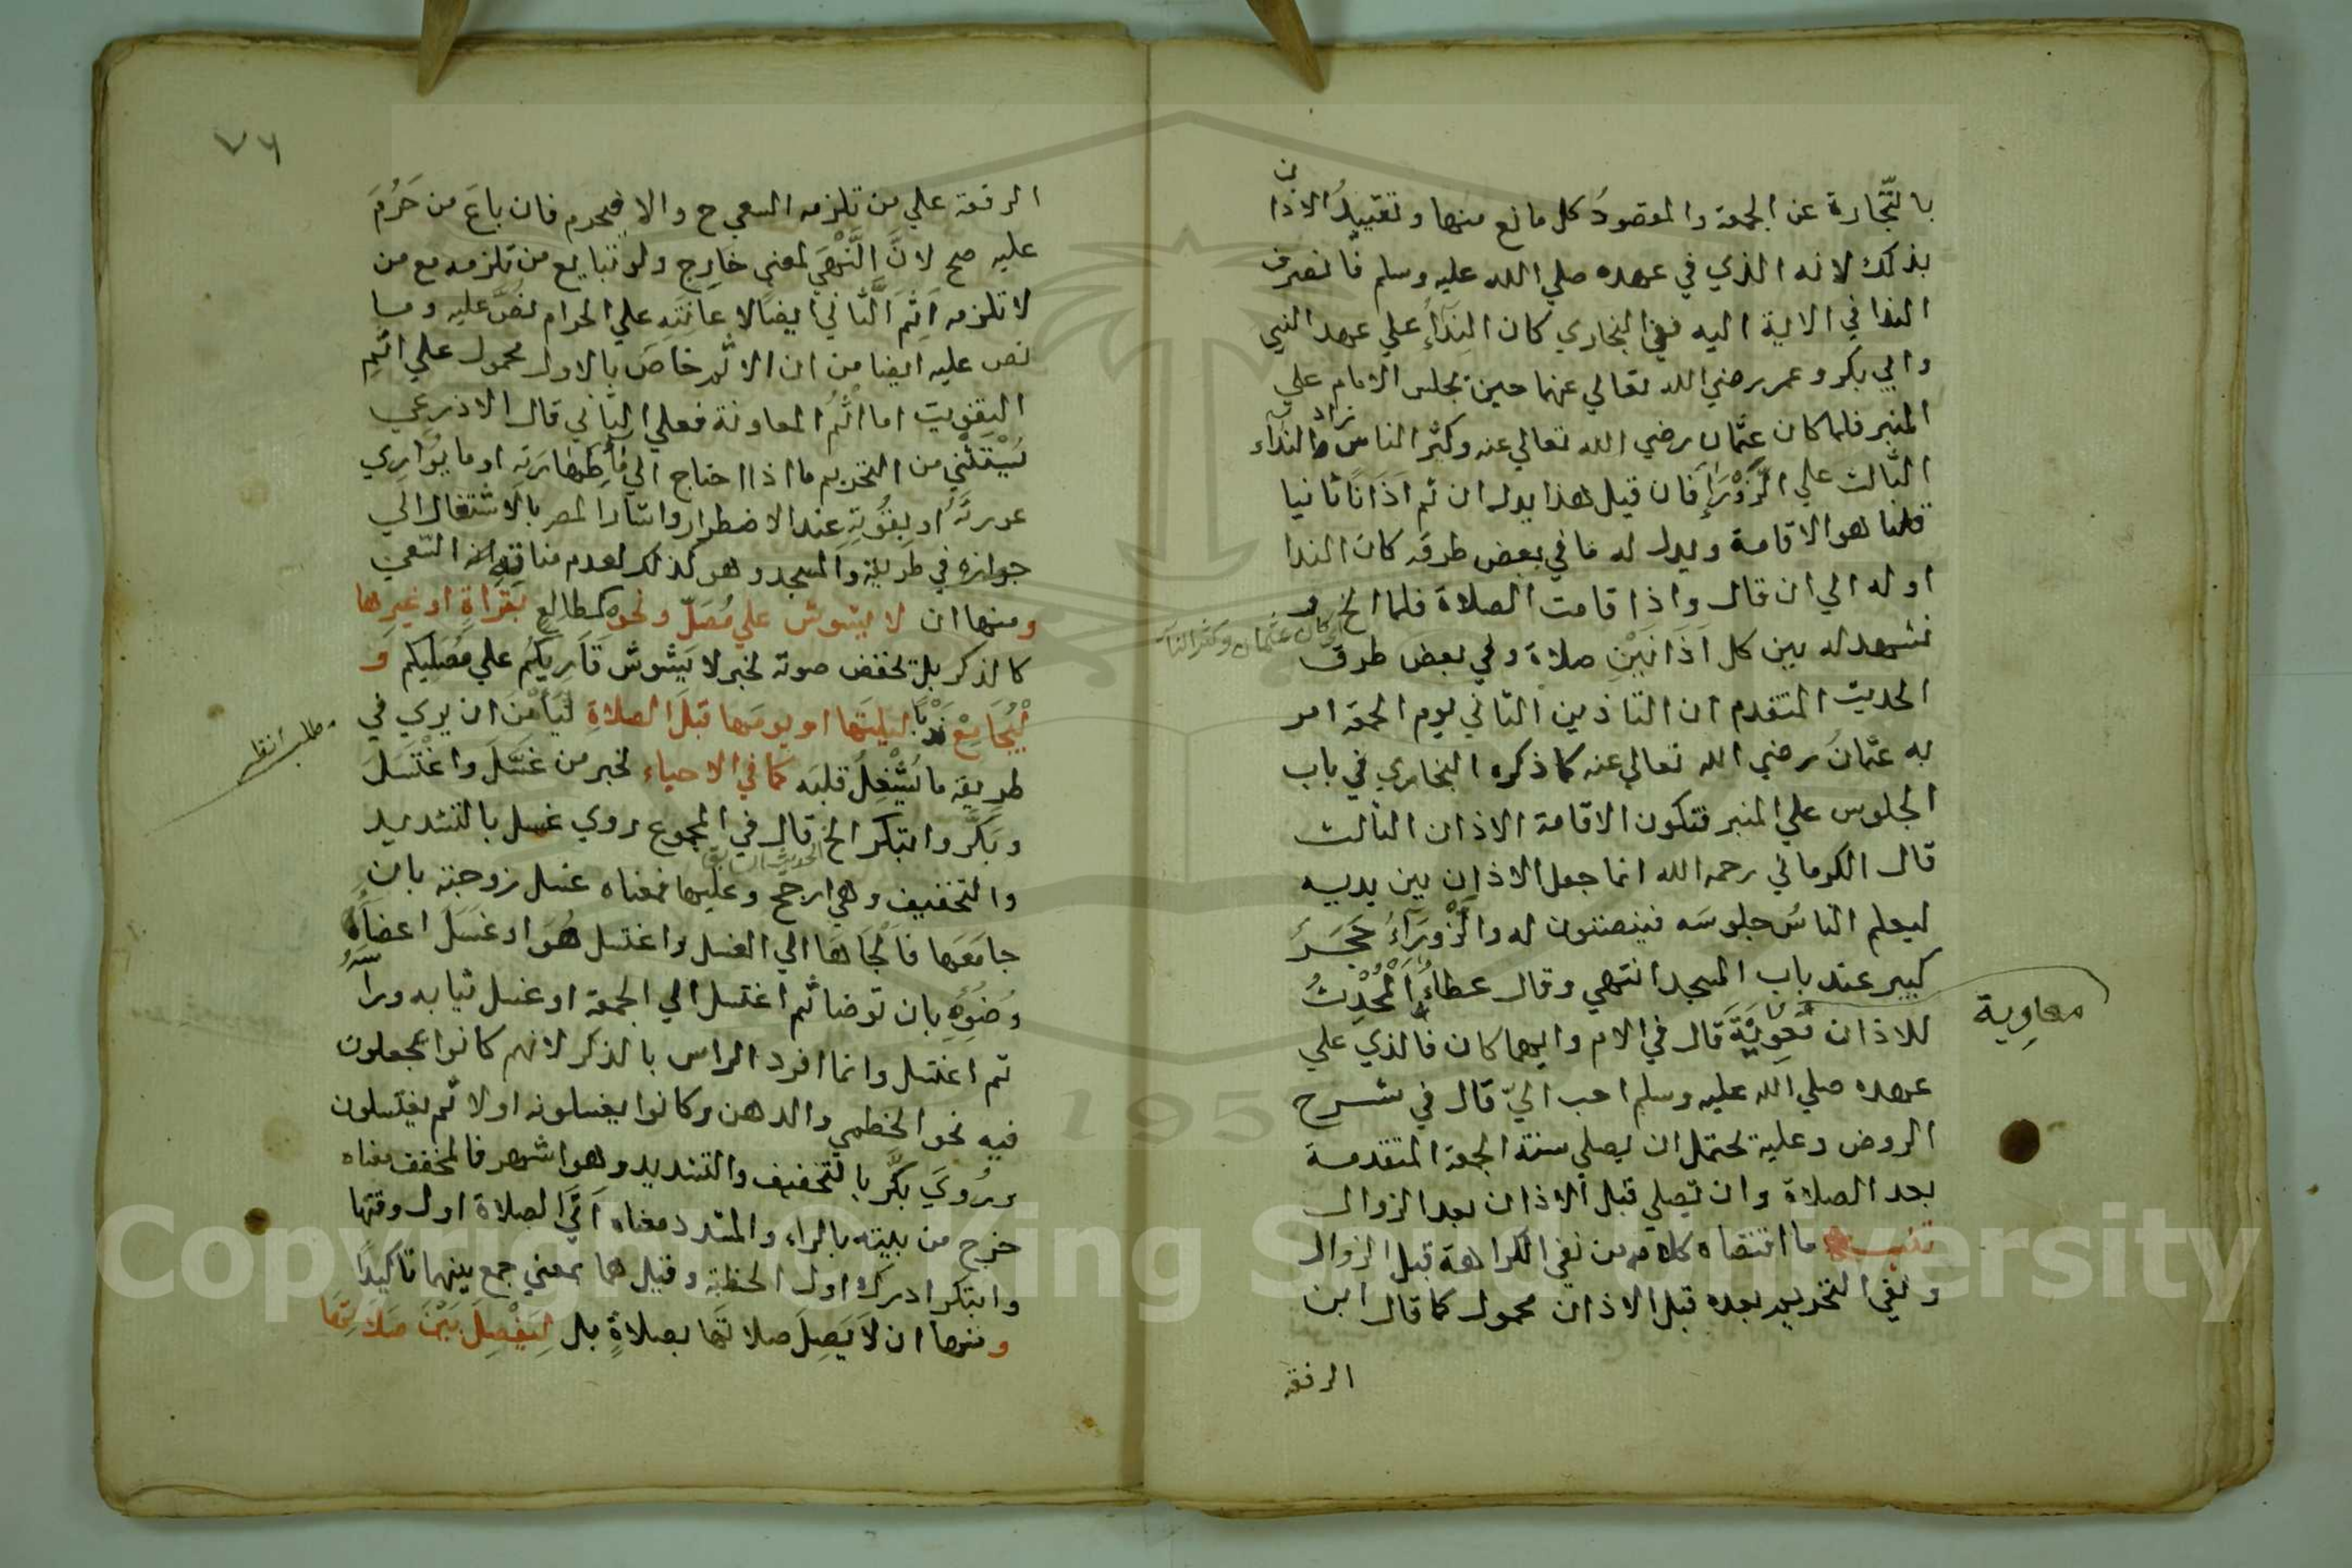 بالتّجارة عن الجمعة والمقصودُ كل مانع منها وتقييدُ الاذان
بذلك لانه الذي في عهده صلي الله عليه وسلم فانصرف
الندا في الاية اليه ففي البخاري كان النِدَآءُ علي عهد النبي
وابي بكر وعمر رضي الله تعالي عنهما حين يجلس الامام علي
المنبر فلما كان عثمان رضي الله تعالي عنه وكثر الناس زاد النداء
الثالث علي الزَّوْرَآءِ فان قيل هذا يدل ان ثم اَذَانًا ثانيا
قلنا هو الاقامة ويدل له ما في بعض طرقه كان الندا
اوله الي ان قال واذا قامت الصلاة فلما الخ و
اي كان عثمان وكثر النا
تشهد له بين كل اَذَانَيْنِ صلاة وفي بعض طرق
الحديث المتقدم ان التاذين الثاني يوم الجمعة امر
به عثمانُ رضي الله تعالي عنه كما ذكره البخاري في باب
الجلوس علي المنبر فتكون الاقامة الاذان الثالث
قال الكرماني رحمه الله انما جعل الاذان بين يديه
ليعلم الناسُ جلوسَه فينصتون له والزَّوْرَآءُ حَجَرَ
كبير عند باب المسجد انتهي وقال عطاءُ اَلْمُحْدِثُ
للاذان مُعَوِيَةَ قال في الام وايهما كان فالذي علي
معاوِية
عهده صلي الله عليه وسلم احب اليّ قال في شرح
الروض وعلية يحتمل ان يصلي سنة الجمعة المتقدمة
بعد الصلاة وان تصلي قبل الاذان بعد الزوال
تنبيه ما اقتضاه كلامه من نفي الكراهة قبل الزوال
ونفي التحريم بعده قبل الاذان محمول كما قال ابن
الرفقه
٧٦
الرفعة علي من تلزمه السعي ح والا فيحرم فان باعَ من حَرُمَ
عليه صح لانَّ النَّهْيَ لمعني خارِج ولو تبايع من تلزمه مع من
لا تلزمه اَثِمَ الثاني ايضًا لاعانتَهِ علي الحرام نُصَّ عليه وما
نص عليه ايضا من ان الاثم خاصَ بالاول محمول علي اثمِ
التفويت اما اثمُ المعاونة فعلي الثاني قال الاذرعي
يُسْتَثْني من التحريم ما اذا احتاج الي ماءِ طهارَتهِ او ما يُوَارِي
عورتَهُ او يقُوتهِ عند الاضطرار واشار المص بالاشتغال الي
جوازه في طريقهِ والمسجد وهو كذلك لعدم منافَاته السعي
ومنها ان لا يشوش علي مُصَلّ ونحوه كمطالِع بقرآةِ او غيرها
كالذكر بل يخفض صوته لخبر لا يَشوش قَارِيكُم علي مُصَليكم وَ
لْيُجَامِعْ نَدْبًا ليلتَها او يومَها قبلَ الصلاةِ ليَأمْنَ ان يري في
طريقه ما يُشْغِلُ قلبَه كما في الاحياء لخبر من غَسَّلَ واغْتَسَلَ
وبَكَّر وابتكر الخ قال في المجموع روي غسل بالتشديد
والتخفيف وهي ارجح وعليهما فمعناه غسل زوجته بان
جامَعَها فالْجَاهَا الي الغسل واغتسل هُوَ او غَسَلَ اعضَآءَ
وُضُوُئهِ بان توضا ثم اغتسل الي الجمعة او غسل ثيابه ورآسَهُ
ثم اغتسل وانما افرد الراس بالذكر لانهم كانوا يجعلون
فيه نحو الخطمي والدهن وكانوا يغسلونه اولا ثم يغتسلون
ورُوِيَ بكَّر بالتخفيف والتشديد وهو اشهر فالمخفف معناه
خرج من بيته بالراء والمشدد معناه اَتَي الصلاة اول وقتها
وابتكر ادرك اول الخطبة وقيل هما بمعني جمع بينهما تاكيدًا
ومنها ان لاَ يَصِلَ صلاتَها بصلاةٍ بل لِيَفْصِلَ بَيْنَ صَلاَتِهَا
Copyright © King Saud University
1957